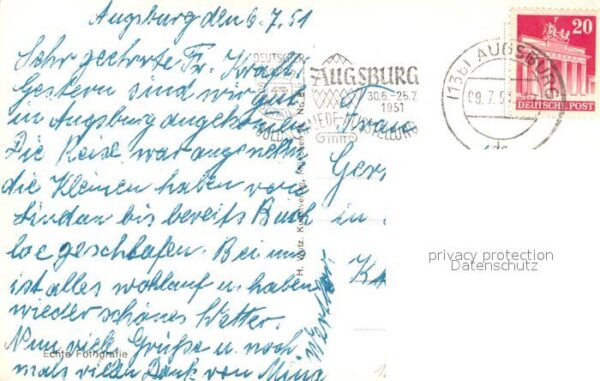 Augsburg den 6.7.51
Sehr geehrte Fr. Kraft
Gestern sind wir gut
in Augsburg angekommen
Die Reise war angenehm
die Kleinen haben von
Lindau bis bereits Buch
loe geschlafen. Bei uns
ist alles wohlauf u. haben
wieder schönes Wetter.
Nun viele Grüße u. noch
mals vielen Dank von
Echte Fotografie
DEUTSCHER
AUGSBURG
30.6.-25.7.
1951
(13b) AUGSBURG
20
DEUTSCHE POST
Frau
in
privacy protection
Datenschutz